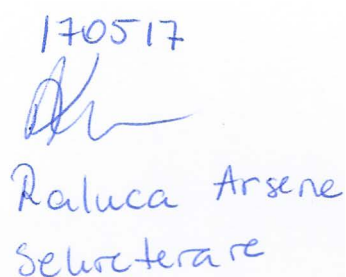 170517
Raluca Arsene
Sekreterare